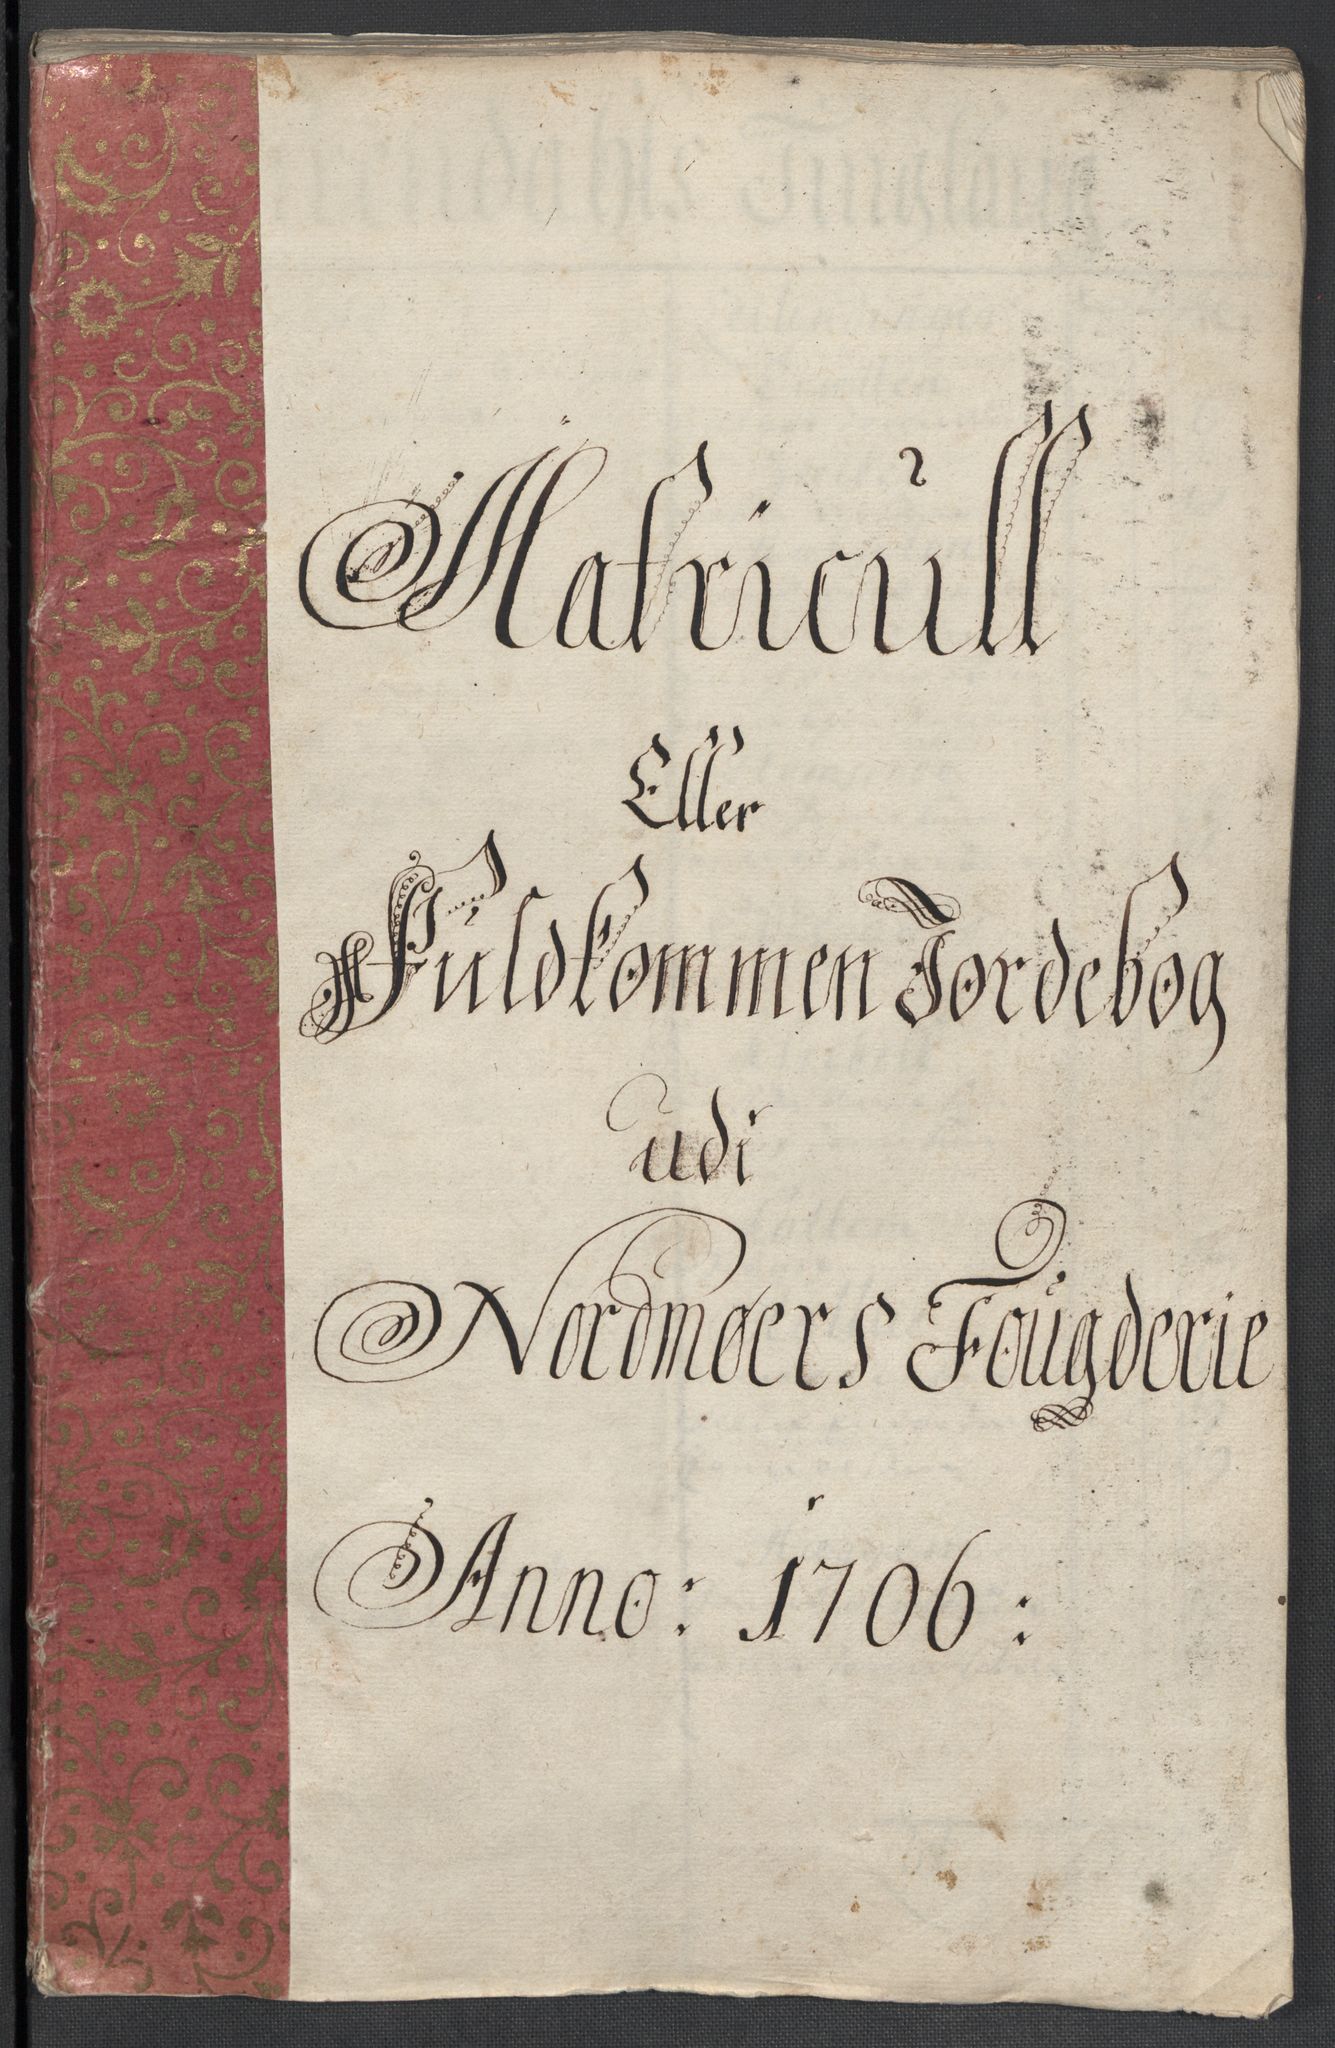 Matricull
Eller
Fuldkommen Jordebog
udi
Nordmøers Fougderie
Anno: 1706: